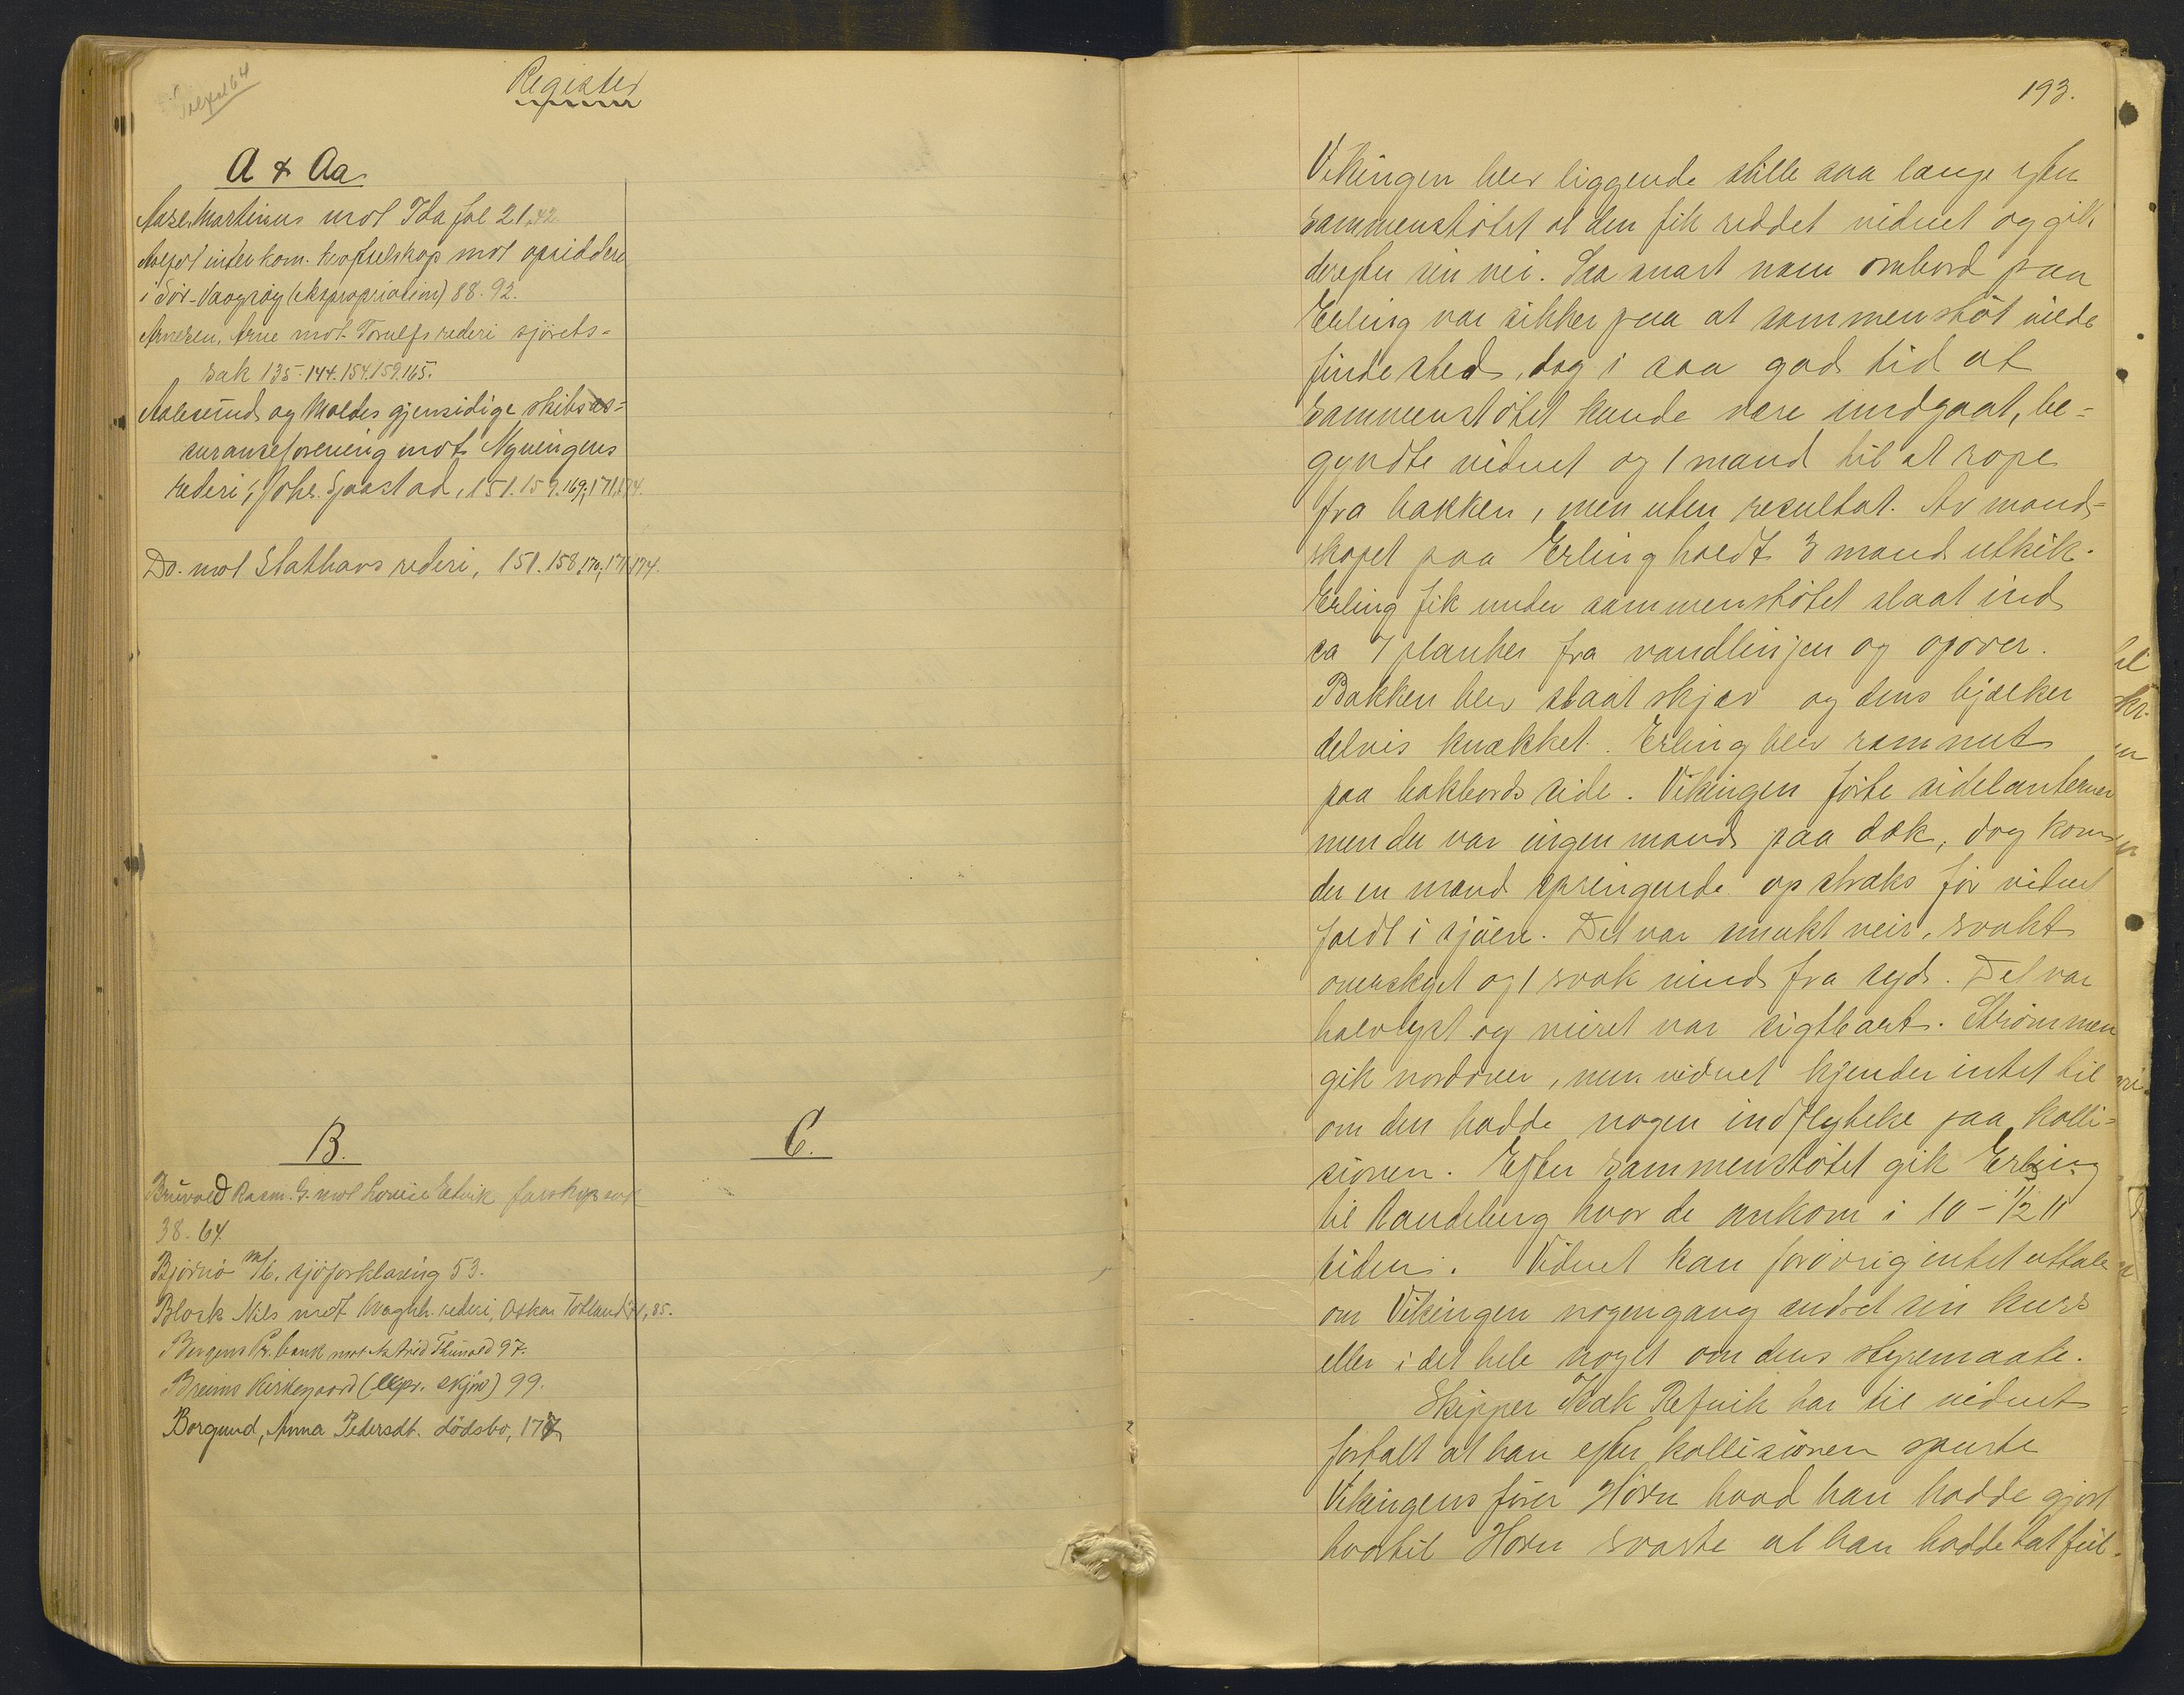 Register
A & Aa
Aase, Martinus mot Ida fol 21.42.
interkom. kraftselskap mot opsiddere
i Sör-Vaagsøy (ekspropriation) 88. 92.
Arnesen, Arne mot Torulfs rederi sjörets-
sak 135-144. 154. 159. 165.
Aalesund og Moldes gjensidige skibsas-
suranseforening mot Nyvingens
rederi v/ Johs. Sjaastad, 151. 159. 169. 171. 174.
Do. mot Stathavs rederi, 151. 158. 170. 171. 174.
B.
Rasm. G. mot Louise farskapssak
38. 64.
Björnö m/k. sjöforklaring 53.
Nils mot rederi, Oskar Totland 71, 85.
Bergens Pr. bank mot Astrid 97.
Breims Kirkegaard (expr. skjön) 99.
Borgund, Anna Pedersdt. dödsbo, 177
C.
193.
Vikingen blev liggende stille saa længe efter
sammenstötet at den fik reddet vidnet og gik
derefter sin vei. Saa snart man ombord paa
Erling var sikker paa at sammenstöt vilde
finde sted, dog i saa god tid at
sammenstötet kunde være undgaat, be-
gyndte vidnet og 1 mand til at rope
fra bakken, men uten resultat. Av mand-
skapet paa Erling holdt 3 mand utkik.
Erling fik under sammenstötet slaat ind
ca 7 planker fra vandlinjen og opover.
Bakken blev slaat skjæv og dens bjælker
delvis knækket. Erling blev rammet
paa bakbords side. Vikingen förte sidelanterner
men der var ingen mand paa dæk, dog kom
der en mand springende op straks för vidnet
faldt i sjöen. Det var smukt veir, svakt
overskyet og svak vind fra syd. Det var
halvlyst og veiret var sigtbart. Strömmen
gik nordover, men vidnet kjender intet til
om den hadde nogen indflydelse paa kolli-
sionen. Efter sammenstötet gik Erling
til Raudeberg hvor de ankom i 10 - 1/2 11
tiden. Vidnet kan forövrig intet uttale
om Vikingen nogengang endret sin kurs
eller i det hele noget om dens styremaate.
Skipper Isak Refvik har til vidnet
fortalt at han efter kollisionen spurte
Vikingens förer Horn hvad han hadde gjort
hvortil Horn svarte at han hadde tat feil.